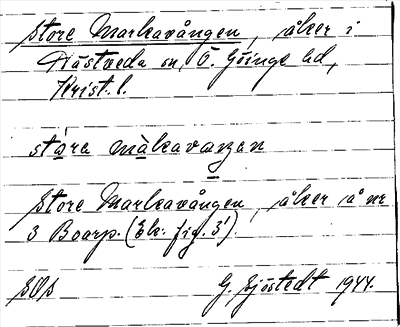 Store Markavången, åker i
Hästveda sn, Ö. Göinge hd,
Krist. l.
stǫra mǎkavaŋen
Store Markavången, åker å nr
3 Boarp. (Ek. fig. 3)
SOS G. Sjöstedt 1944.